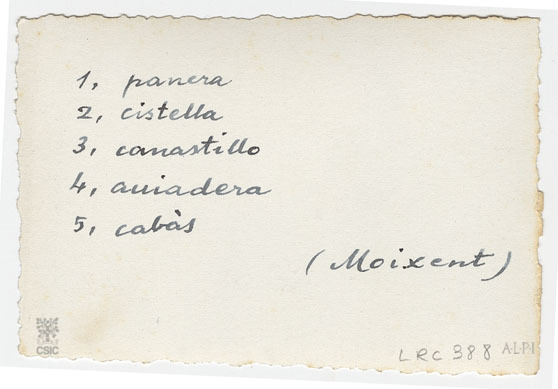 1, panera
2, cistella
3, canastillo
4, auiadera
5, cabàs
(Moixent)
CSIC
LRC 388 A·L·P·I